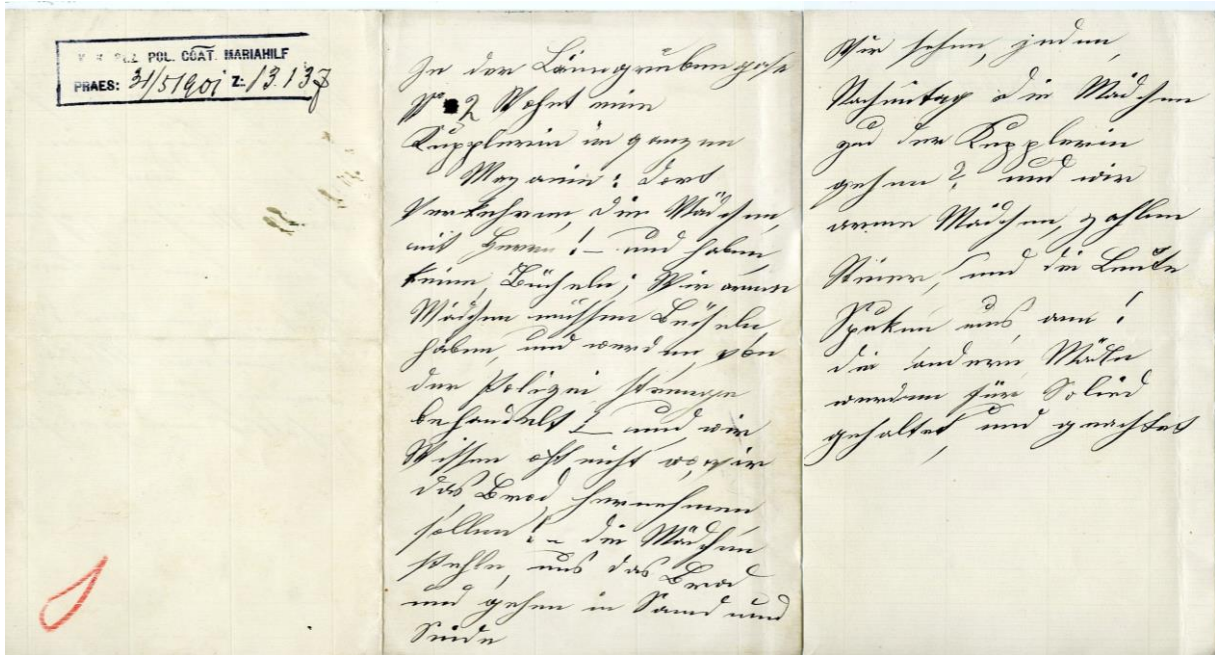 K. K. BEZ. POL. COÄT. MARIAHILF
PRAES: 31/5 1901 Z: 13.137
In der Laimgrubengasse
No 2 Wohnt eine
Kupplerin im ganzen
Mezanin: dort
Verkehren, die Mädchen,
mit Herrn! – und haben,
keine, Bücheln; Wir arme
Mädchen müssen Bücheln
haben, und werden, von
der Polizei strenge
behandelt! – und wir
Wissen oft nicht wo, wir
das Brod, hernehmen
sollen! – die Mädchen
stehle, uns das Brod
und gehen in Samd und
Seide
Wir sehen, jeden,
Nachmitag die Mädchen
zu der Kupplerin
gehen? und wir
arme Mädchen, zahlen
Steier, und die Leute
Spuken uns ann!
die andern Mädln
werden für Solied
gehaltet, und geachtet